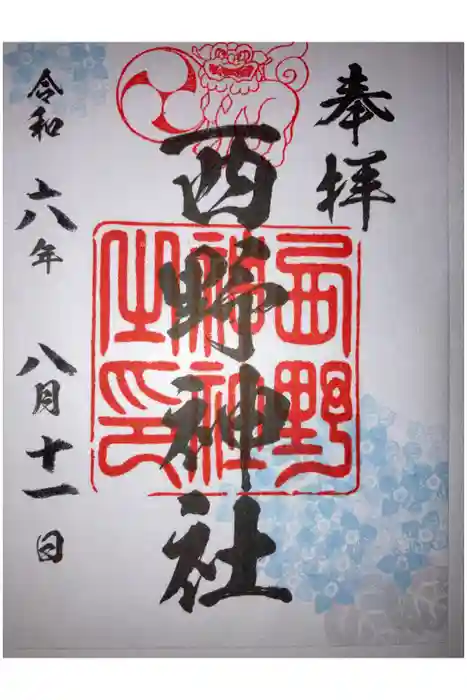 奉拝
西野神社
西野
神社神
之印
令和六年八月十一日